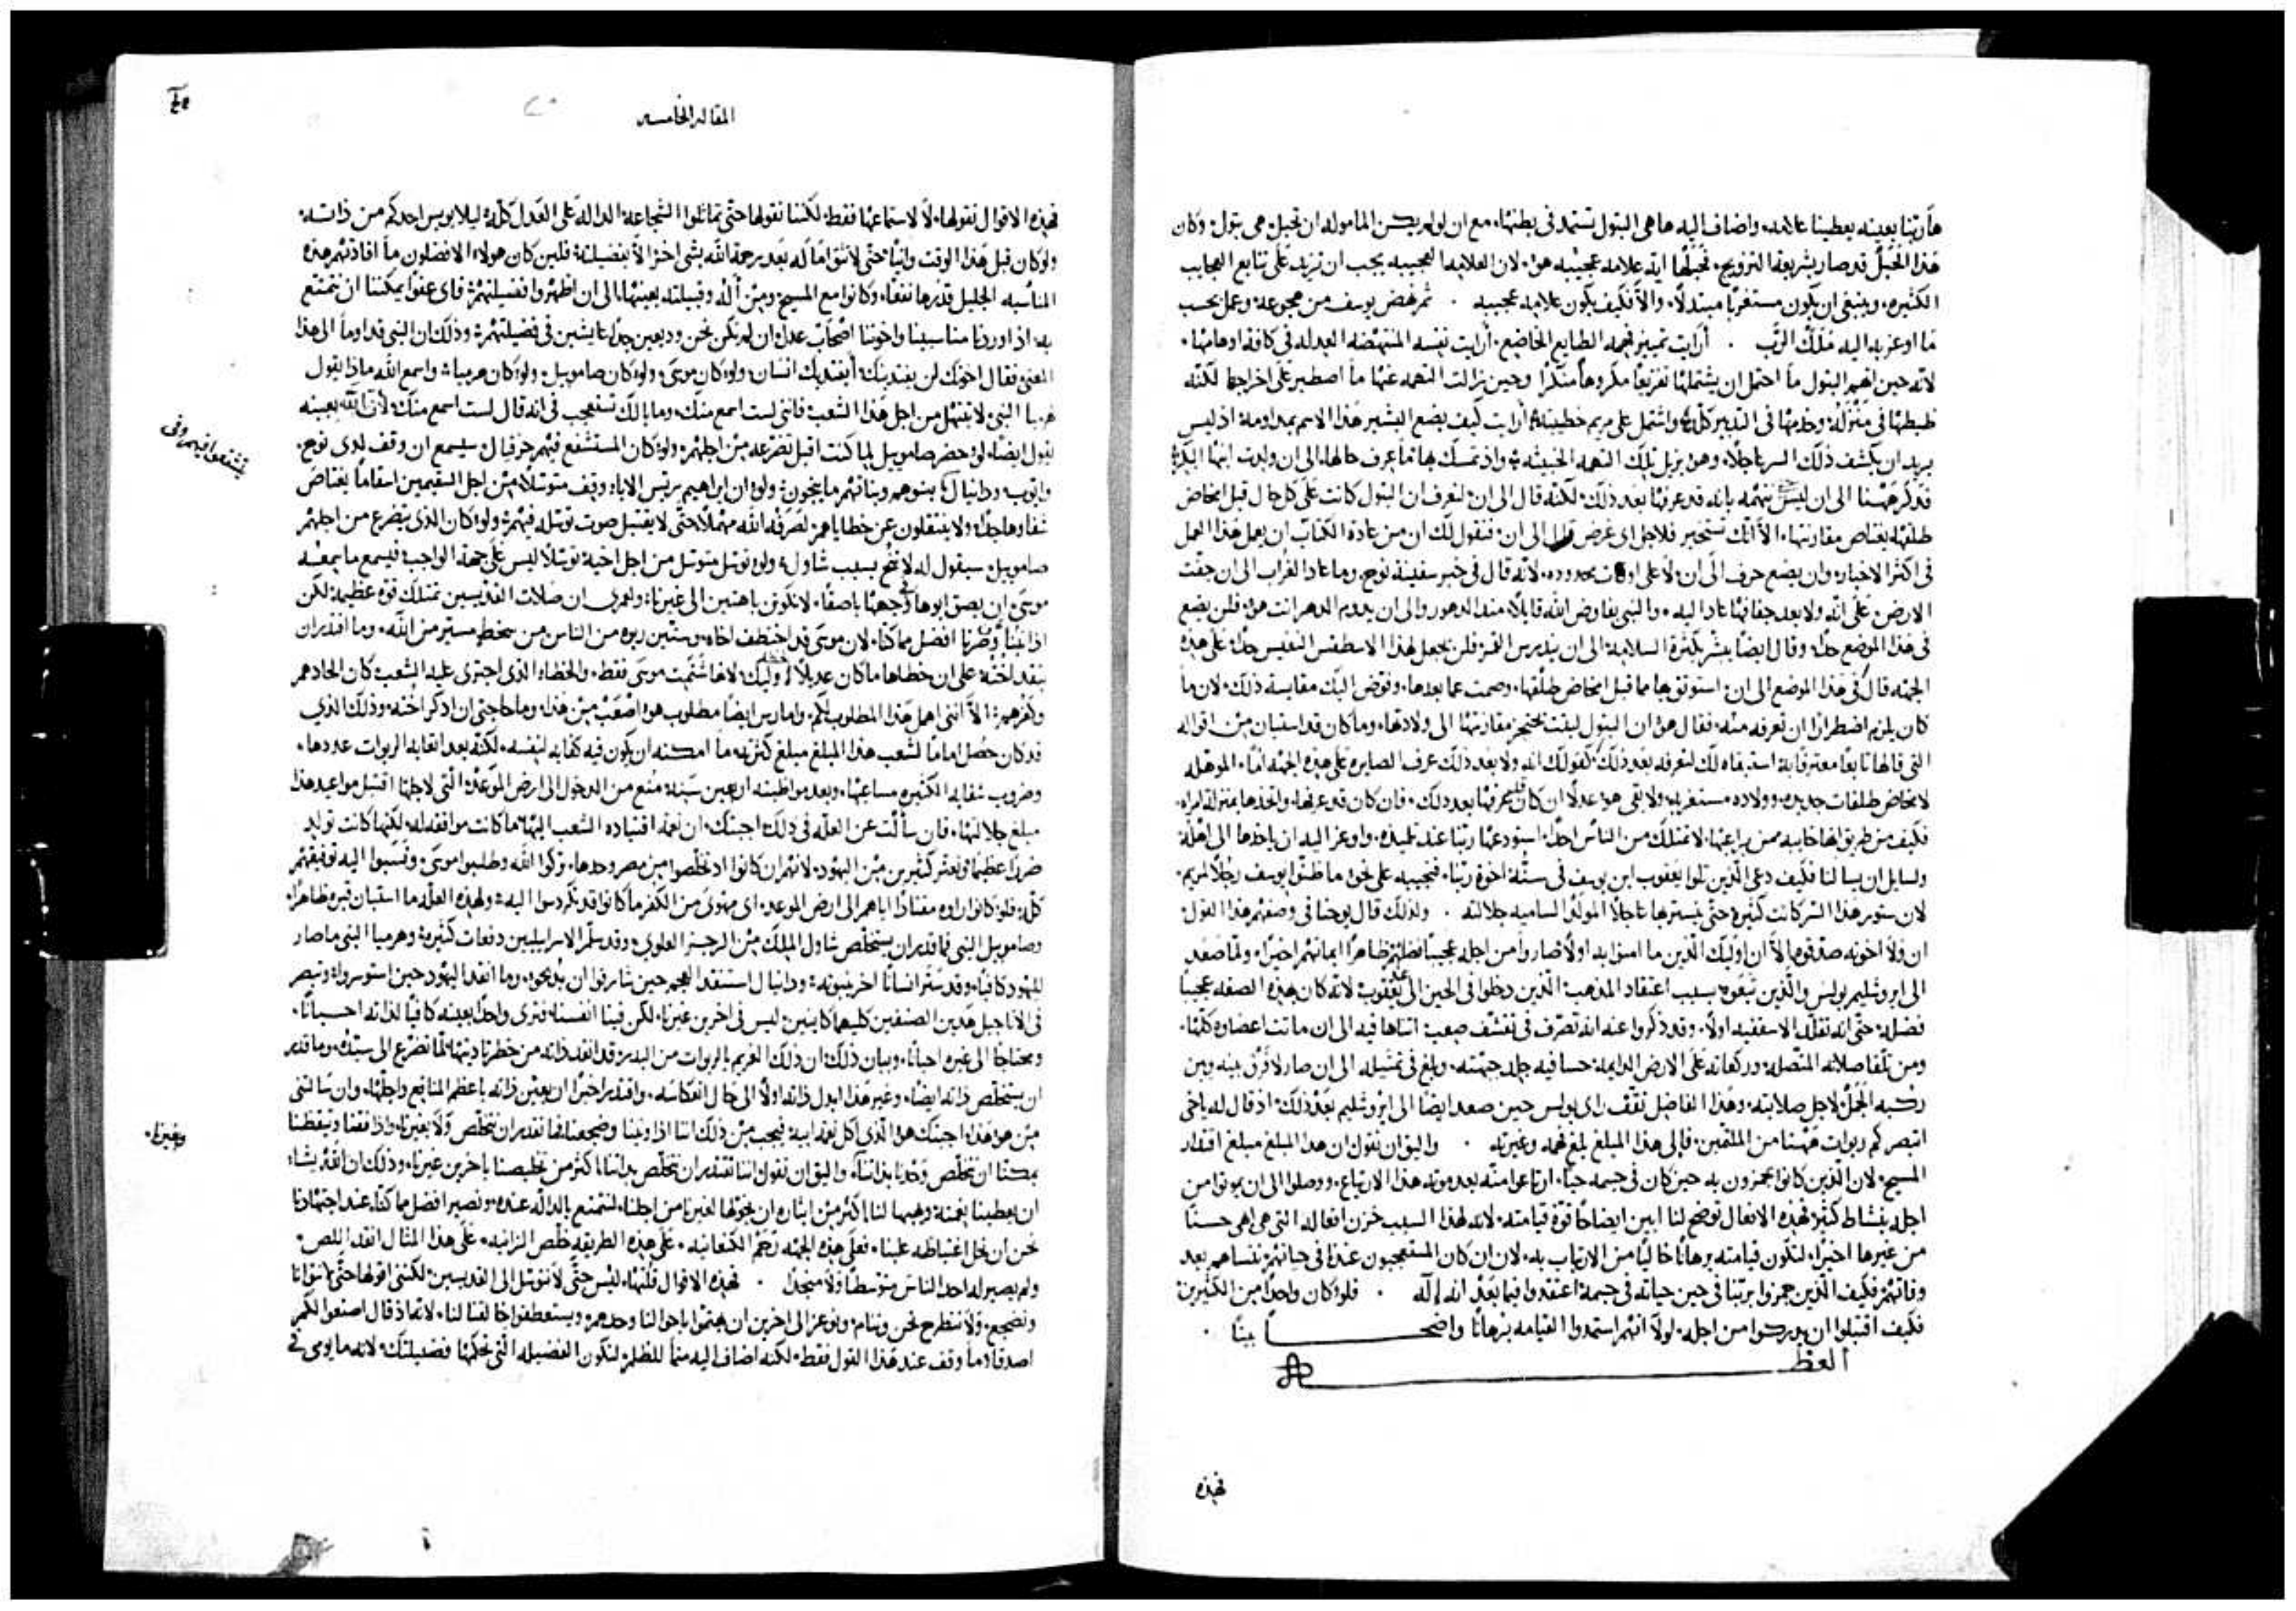 ها ربنا بعينه يعطينا علامه واضاف اليه ها هي البتول تستمد في بطنها مع ان لو لم يكن المامول ان تحبل هي بتول وكان
هذا الحبل قد صار بشريعة التزويج فحبلها اية علامه عجيبه هو لان العلامه العجيبه يجب ان تزيد على تتابع العجايب
الكثيره وينبغي ان يكون مستغربا مبتدلا والا فكيف يكون علامه عجيبه ثم نهض يوسف من هجوعه وعمل بحسب
ما اوعز به اليه ملاك الرب ارايت تمييز فهمه الطايع الخاضع ارايت نفسه المنتهضه العدله في كافة اوهامها
لانه حين اتهم البتول ما احتمل ان يشتملها تقريعا مكروها منكرا وحين زالت التهمه عنها ما اصطبر على اخراجها لكنه
ضبطها في منزله وخدمها في التدبير كله واشتمل على مريم خطيبته ارايت كيف يضع البشير هذا الاسم بمداومة اذ ليس
يريد ان يكشف ذلك السر عاجلا وهو يزيل تلك التهمه الخبيثه واذ تمسك بها ما عرف حالها الى ان ولدت ابنها البكر
فذكر ههنا الى ان ليس حتى نتهمه بانه قد عرفها بعد ذلك لكنه قال الى ان لتعرف ان البتول كانت على كل حال قبل امخاض
طلقها يعتاص مقارنتها الا انك تستخبر فلاجل اي غرض قال الى ان فنقول لك ان من عادة الكتاب ان يعمل هذا العمل
في اكثر الاخبار وان يضع حرف الى ان لا على اوقات محدوده لانه قال في خبر سفينة نوح وما عاد الغراب الى ان جفت
الارض على انه ولا بعد جفافها عاد اليه والنبي يفاوض الله قايلا منذ الدهور والى ان يعدم الدهر انت هو فلن يضع
في هذا الموضع حدا وقال ايضا يشرق كثرة السلامه الى ان يندرس القمر فلن يجعل لهذا الاسطقس النفيس حدا على هذه
الجهه قال في هذا الموضع الى ان استوثق بها ما قبل امخاض طلقها وصمت عما بعدها وفوض اليك مقايسة ذلك لان ما
كان يلزم اضطرارا ان تعرفه منه فقال هو ان البتول لبثت بختم مقارنتها الى ولادتها وما كان قد استبان من اقواله
التي قالها تابعا معترفا به استبقاه لك لتعرفه بعد ذلك كقولك انه ولا بعد ذلك عرف الصايره على هذه الجهه اما الموهله
لامخاض طلقات جديده وولاده مستغربه ولا بقي هو عدلا ان كان قد عرفها بعد ذلك فان كان قد عرفها واتخذها بمنزلة امراه
فكيف من طريق انها خايبه ممن يراعيها لا تمتلك من الناس احدا استودعها ربنا عند تلميذه واوعز اليه ان ياخذها الى اهله
ولسايل ان يسالنا فكيف دعي الذين تلوا يعقوب ابن يوسف في ستة اخوة ربنا فنجيبه على نحو ما ظنوا يوسف رجلا لمريم
لان ستور هذا السر كانت كثيره حتى يستر بها عاجلا المولد الساميه جلالته ولذلك قال يوحنا في وصفهم هذا القول
ان ولا اخوته صدقوه الا ان اوليك الذين ما امنوا به اولا صاروا من اجله عجيبا فضلهم ظاهرا ايمانهم اخيرا ولما صعد
الى اورشليم بولس والذين تبعوه بسبب اعتقاد المذهب الذين دخلوا في الحين الى يعقوب لانه كان بهذه الصفه عجيبا
فضله حتى انه تقلد الاسقفيه اولا وقد ذكروا عنه انه تصرف في تقشف صعب اتناها فيه الى ان ماتت اعضاوه كلها
ومن تلقا صلاته المتصله وركعاته على الارض الدايمه جسا فيه جلد جبهته وبلغ في تمثيله الى ان صار لا فرق بينه وبين
ركبة الجمل لاجل صلابته وهذا الفاضل ثقف راي بولس حين صعد ايضا الى اورشليم بعد ذلك اذ قال له يا خي
اتبصر كم ربوات ههنا من الملتئمين فالى هذا المبلغ بلغ فهمه وغيرته واليق ان نقول ان هذا المبلغ مبلغ اقتدار
المسيح لان الذين كانوا يهمزون به حين كان في جسمه حيا ارتاعوا منه بعد موته هذا الارتياع ووصلوا الى ان يموتوا من
اجله بنشاط كثير فهذه الافعال توضح لنا ابين ايضاحا قوة قيامته لانه لهذا السبب خزن افعاله التي هي اهي حسنا
من غيرها اخيرا لتكون قيامته برهانا خاليا من الارتياب به لان ان كان المستعجبون عندنا في حياتهم ننساهم بعد
وفاتهم فكيف الذين همزوا بربنا في حين حياته في جسمه اعتقدوا فيما بعد انه اله فلو كان واحدا من الكثيرين
فكيف اقتبلوا ان يدركوا من اجله لولا انهم استمدوا القيامه برهانا واضحا بينا
العظه
فهذه
المقاله الخامسه
فهذه الاقوال نقولها لا لاستماعها فقط لكننا نقولها حتى تماثلوا الشجاعة الداله على العدل كله ليلا يويس احدكم من ذاته
ولو كان قبل هذا الوقت وانيا حتى لا تثق امالة بعد رحمة الله بشي اخر الا بفضيلته فلين كان هولاء الافضلون ما افادتهم هذه
المناسبه الجليل قدرها نفعا وكانوا مع المسيح ومن آله وقبيلته بعينها الى ان اظهروا فضيلتهم فاي عفو يمكننا ان نتمتع
به اذا اوردنا مناسبينا واخوتنا اصحاب عدل ان لم نكن نحن وديعين جدا عايشين في فضيلتهم وذلك ان النبي قد اوما الى هذا
المعنى فقال اخوك لن يفتديك ايفتديك انسان ولو كان موسى ولو كان صامويل ولو كان هرميا واسمع الله ماذا يقول
لهرميا النبي لا تبتهل من اجل هذا الشعب فانني لست اسمع منك وما بالك تستعجب في انه قال لست اسمع منك لان الله بعينه
يقول ايضا لو حضر صامويل لما كنت اقبل تضرعه من اجلهم ولو كان المستشفع فيهم حزقيال سيسمع ان وقف لدي نوح
وايوب ودانيال بنوهم وبناتهم ما ينجون ولو ان ابراهيم ريس الاباء وقف متوسلا من اجل السقيمين اسقاما يعتاص
شفاوها جدا ولا ينتقلون عن خطاياهم لصرفه الله مهملا حتى لا يقتبل صوت توسله فيهم ولو كان الذي يتضرع من اجلهم
صامويل سيقول له لا تنح بسبب شاول ولو توسل متوسل من اجل اخيه توسلا ليس على جهة الواجب فيسمع ما سمعه
موسى ان بصق ابوها في وجهها باصقا لا نكون باهتين الى غيرنا ولعمري ان صلات القديسين تمتلك قوه عظيمه لكن
اذا تبنا وصرنا افضل مما كنا لان موسى قد اختطف اخاه وستين ربوه من الناس من سخط مستتر من الله وما اقتدر ان
ينقد اخته على ان خطاها ما كان عديلا لخطا اوليك لانها شتمت موسى فقط والخطاء الذي اجترى عليه الشعب كان الحادهم
وكفرهم الا انني اهمل هذا المطلوب لكم وامارس ايضا مطلوب هو اصعب من هذا وما حاجتي ان اذكر اخته وذلك الذي
قد كان حصل اماما لشعب هذا المبلغ مبلغ كثرته ما امكنه ان يكون فيه كفايه لنفسه لكنه بعد اتعابه الربوات عددها
وضروب شقايه الكثيره مساعيها وبعد مواظبته اربعين سنه منع من الدخول الى ارض الموعد التي لاجلها اقتبل مواعيد هذا
مبلغ جلالتها فان سالت عن العله في ذلك اجبتك ان نعمة اقتياده الشعب اليها ما كانت موافقه له لكنها كانت تولد
ضررا عظيما وتعثر كثيرين من اليهود لانهم ان كانوا اذ تخلصوا من مصر وحدها تركوا الله وطلبوا موسى ونسبوا اليه توفيقهم
كله فلو كانوا راوه مقتادا اياهم الى ارض الموعد اي مهوى من الكفر ما كانوا قد تكردسوا اليه ولهذه العله ما استبان قبره ظاهرا
وصامويل النبي فما قدر ان يستخلص شاول الملك من الرجز العلوي وقد سلم الاسرايليين دفعات كثيره وهرميا النبي ما صار
لليهود كافيا وقد ستر انسانا اخر بنبوته ودانيال استنقد العجم حين شارفوا ان يذبحوه وما انقد اليهود حين استوسروا وتبصر
في الاناجيل هذين الصنفين كليهما كاينين ليس في اخرين غيرنا لكن فينا انفسنا فترى واحدا بعينه كافيا لذاته احيانا
ومحتاجا الى غيره احيانا وبيان ذلك ان ذلك الغريم بالربوات من البدر قد انقد ذاته من خطر ناديتها لما تضرع الى سيده وما قدر
ان يستخلص ذاته ايضا وغير هذا ابدل ذاته اولا الى حال انعكاسه واقتدر اخيرا ان يعين ذاته باعظم المنافع واجلها وان سالتني
من هو هذا اجبتك هو الذي اكل نقد ابيه فيجب من ذلك اننا اذا ونينا وضجعنا فما نقدر ان نتخلص ولا بغيرنا واذا تيقظنا
يمكنا ان نتخلص وحدنا بذاتنا واليق ان نقول اننا نقتدر ان نتخلص بذاتنا اكثر من تخليصنا باخرين غيرنا وذلك ان الله يشاء
ان يعطينا نعمته ويهبها لنا اكثر من ايثاره ان يخولها لغيرنا من اجلنا لنتمتع بالداله عنده ونصير افضل مما كنا عند اجتهادنا
نحن ان نحل اغتياظه علينا فعلى هذه الجهه رحم الكنعانيه على هذه الطريقه خلص الزانيه على هذا المثال انقد اللص
ولم يصير له احد الناس متوسطا ولا منجدا فهذه الاقوال قلتها ليس حتى لا نتوسل الى القديسين لكنني اقولها حتى لا نتوانا
ونضجع ولا ننطرح نحن وننام ونوعز الى اخرين ان يهتموا باحوالنا وحدهم ويستعطفوا خالقنا لنا لانه اذ قال اصنعوا لكم
اصدقاء ما وقف عند هذا القول فقط لكنه اضاف اليه مما للظلم لتكون الفضيله التي تحكمها فضيلتك لانه ما يومي في
وغيرناء